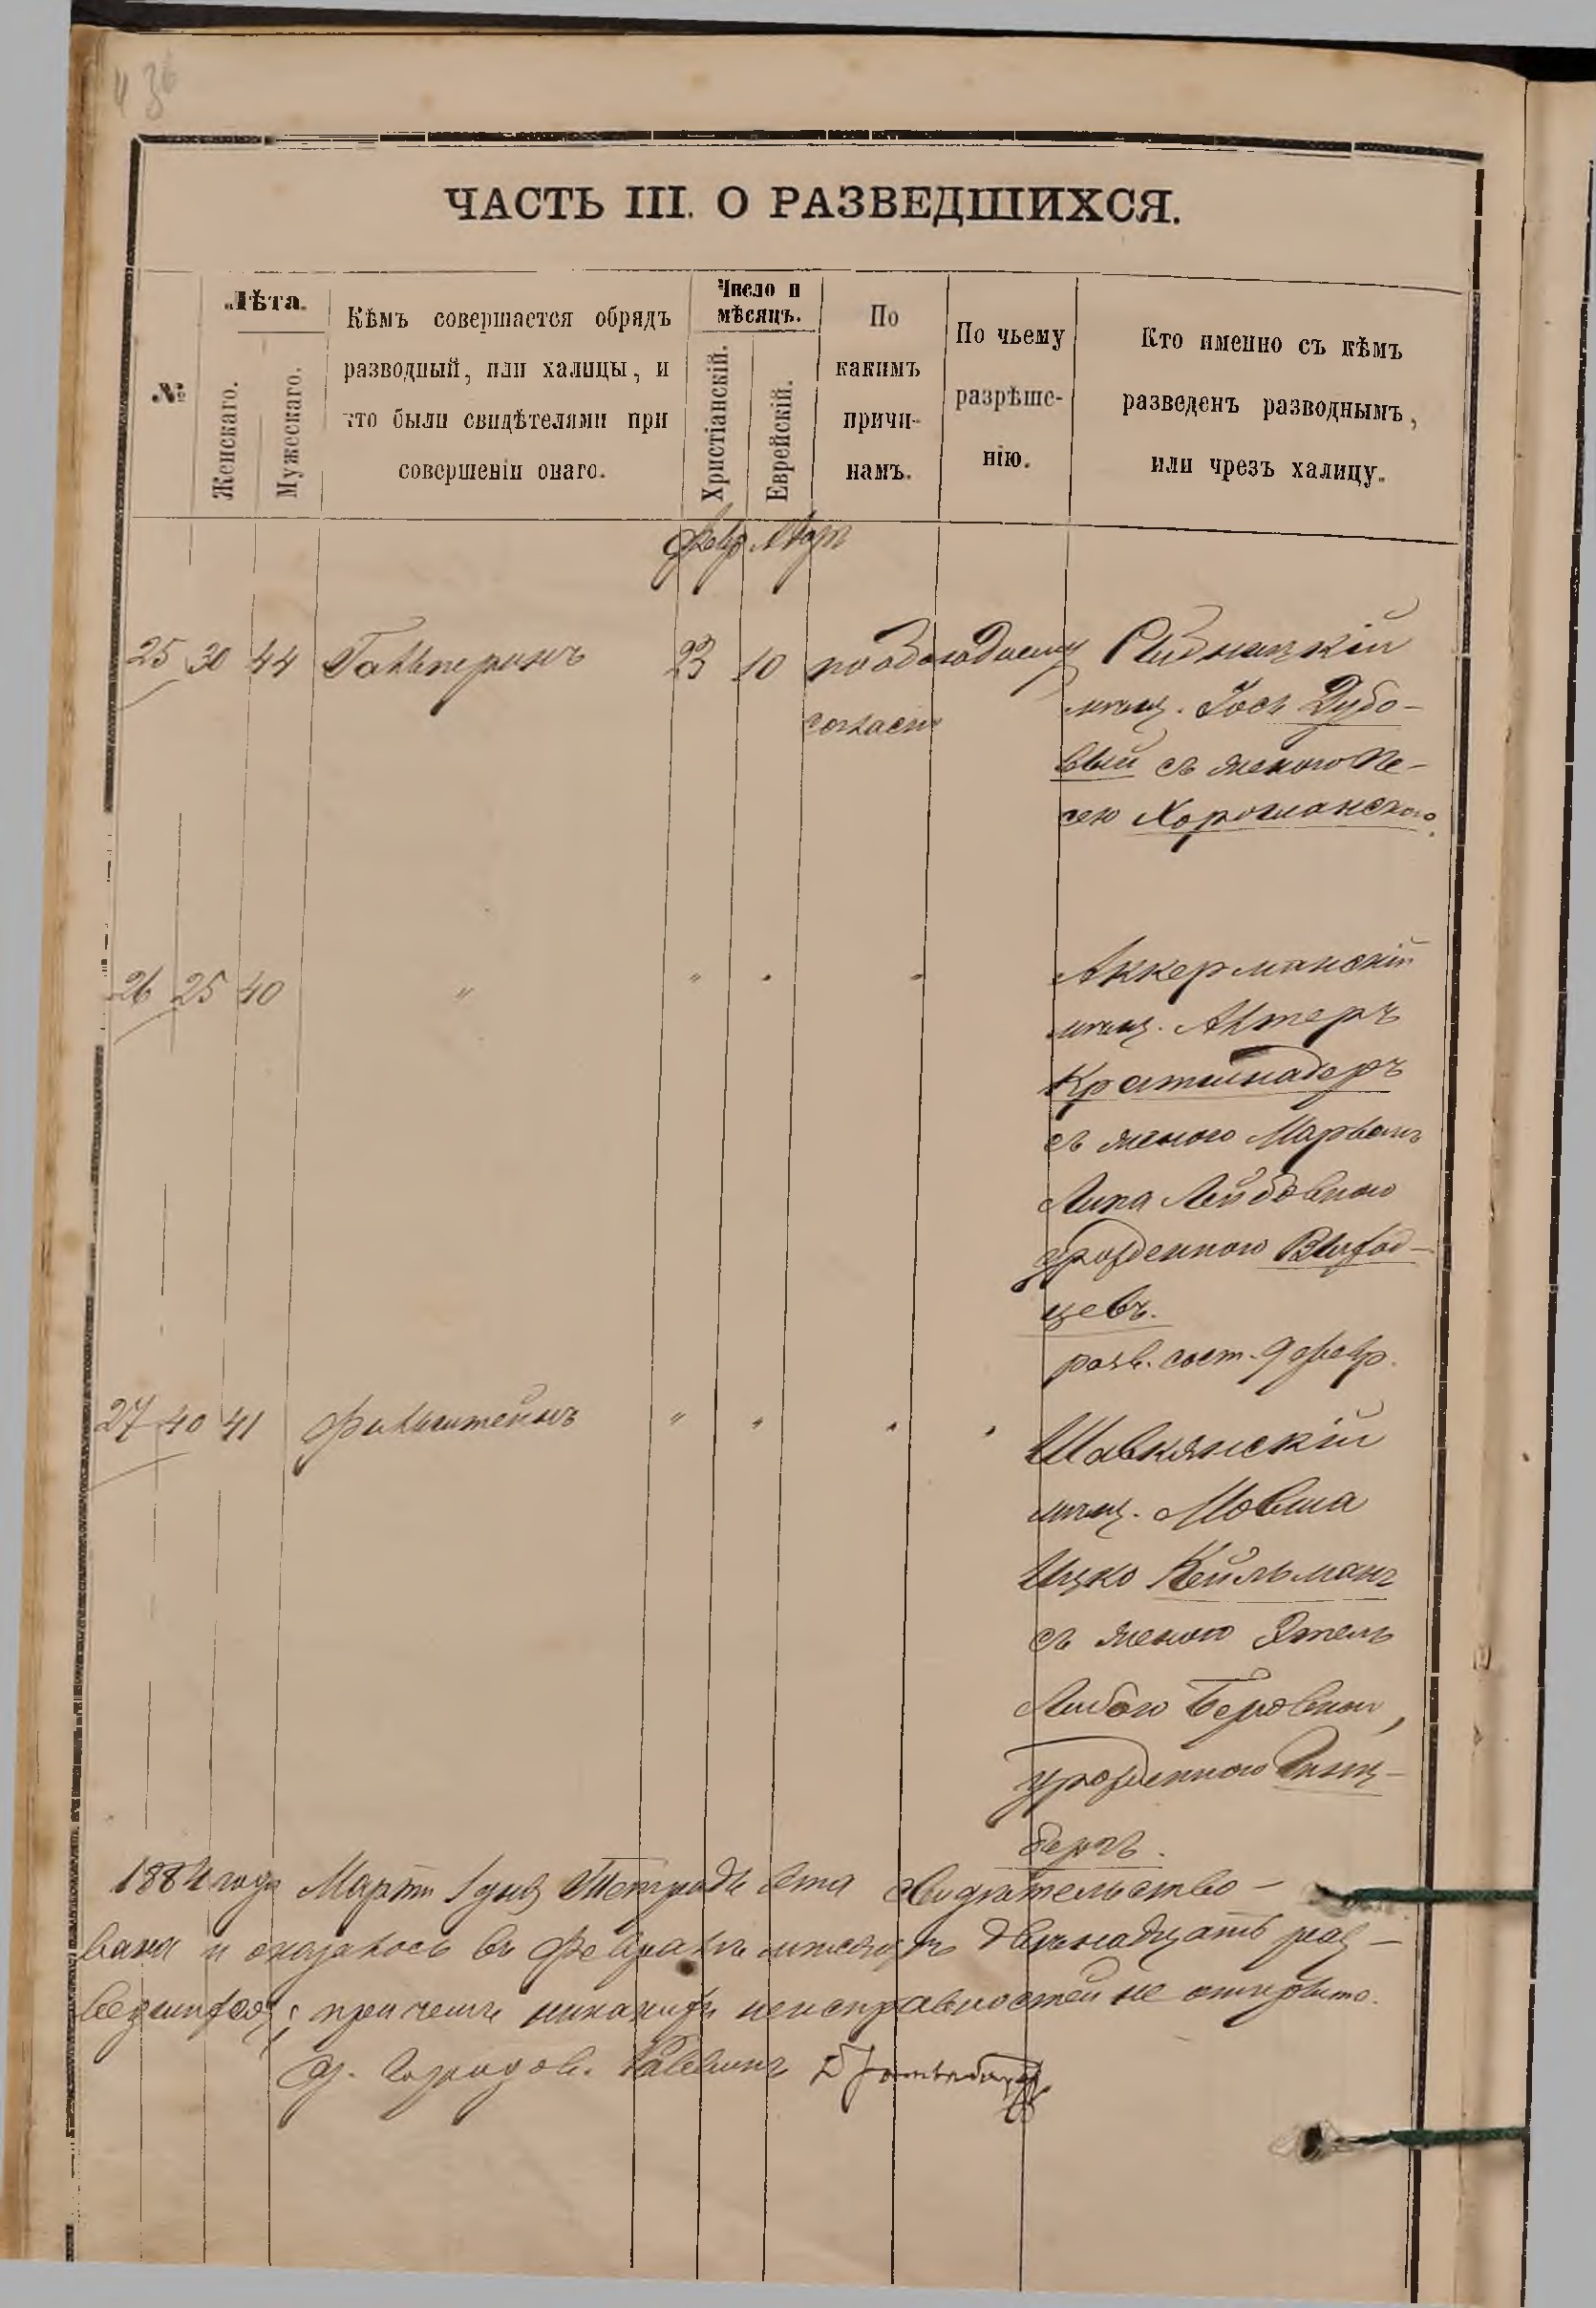 436
ЧАСТЬ III. О РАЗВЕДШИХСЯ.
№
Лѣта.
Женскаго.
Мужескаго.
Кѣмъ совершается обрядъ
разводный, или халицы, и
кто были свидѣтелями при
совершеніи онаго.
Число и
мѣсяцъ.
Христіанскій.
Еврейскій.
По
какимъ
причи-
намъ.
По чьему
разрѣше-
нію.
Кто именно съ кѣмъ
разведенъ разводнымъ,
или чрезъ халицу.
Февр.
25 30 44 Гальперинъ 23 10 по обоюдному Рыбницкій
согласію мѣщ. Іось Дубо-
вый съ женою Пе-
сею Хорошанскою.
26 25 40 " " " " Аккерманскій
мѣщ. Алтеръ
съ женою
Лейбовною
урожденною Выход-
цевъ.
разв. сост. 9 февр.
27 40 41 Финкельштейнъ " " " " Шавкянскій
мѣщ. Мовша
Ицко Кейльманъ
съ женою Этель
Либою Беровною,
урожденною Гинц-
бергъ.
1884 года Марта 1 дня Тетрадь эта свидѣтельство-
вана и оказалось въ Февралѣ мѣсяцѣ двѣнадцать раз-
ведшихся; при чемъ никакихъ неисправностей не открыто.
Раввинъ